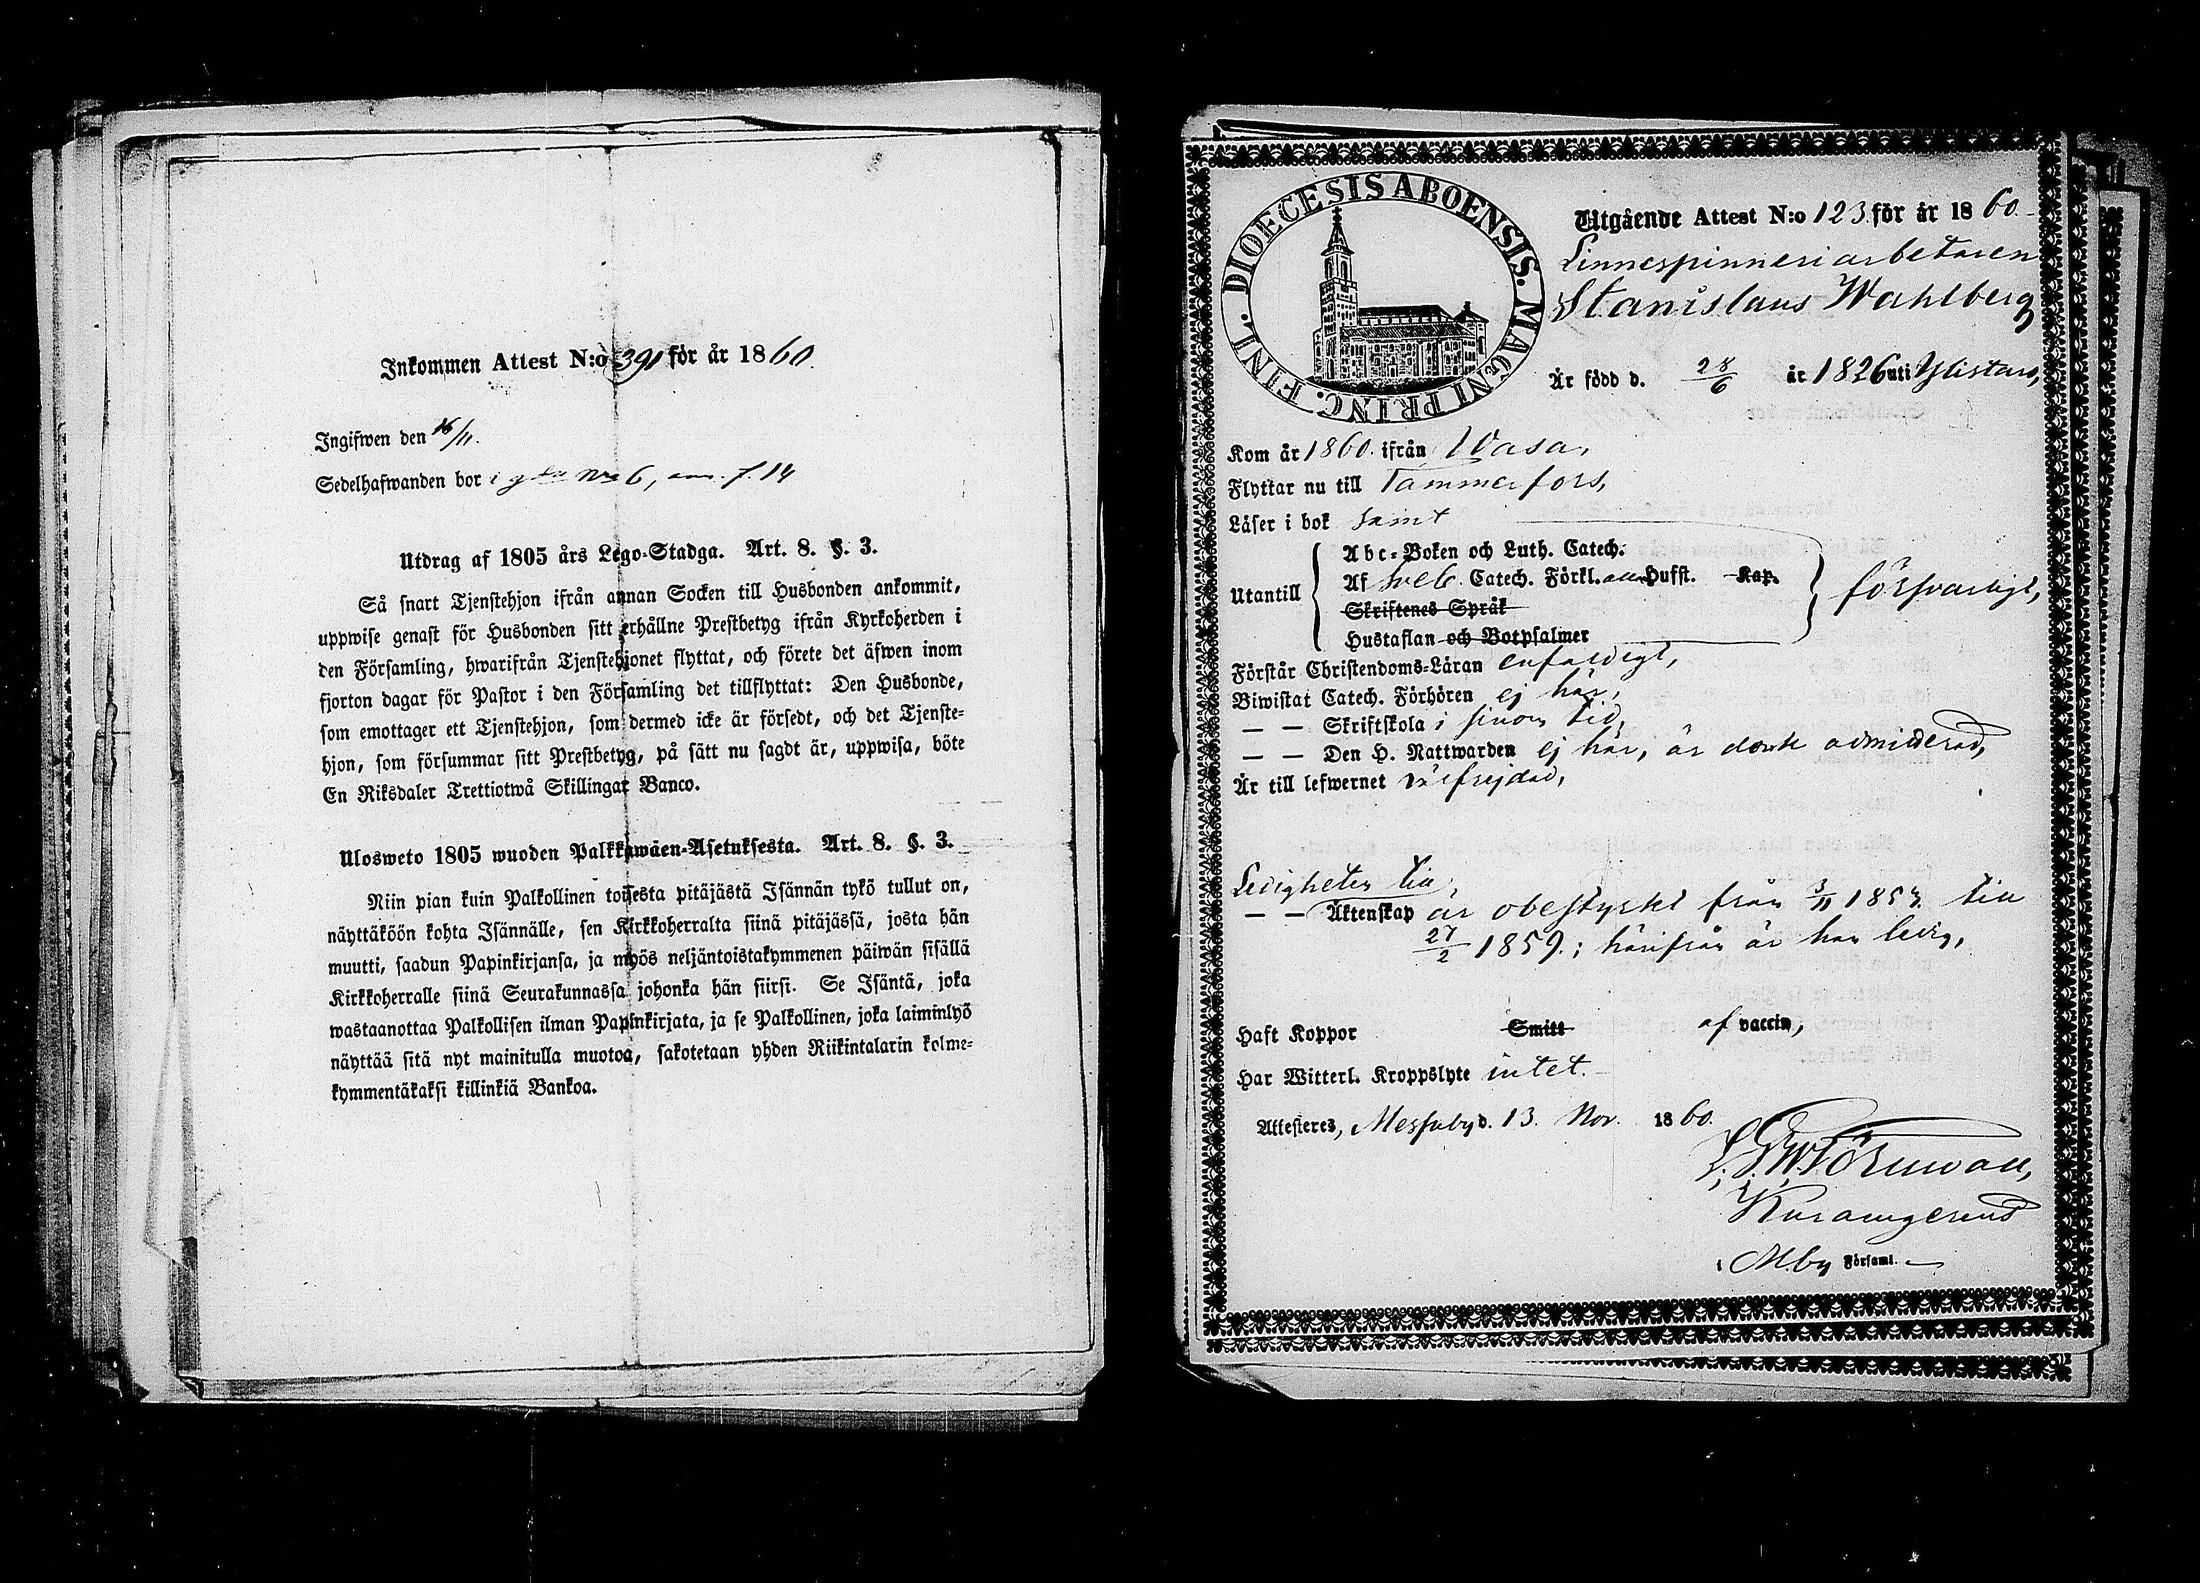 Inkommen Attest N:o 391 för år 1860.
Ingifwen den 16/11.
Sedelhafwanden bor i gården Nro 6, f. 14
Utdrag af 1805 års Lego-Stadga. Art. 8. §. 3.
Så snart Tjenstehjon ifrån annan Socken till Husbonden ankommit,
uppwise genast för Husbonden sitt erhållne Prestbetyg ifrån Kyrkoherden i
den Församling, hwarifrån Tjenstehjonet flyttat, och förete det äfwen inom
fjorton dagar för Pastor i den Församling det tillflyttat: Den Husbonde,
som emottager ett Tjenstehjon, som dermed icke är försedt, och det Tjenste-
hjon, som försummar sitt Prestbetyg, på sätt nu sagdt är, uppwisa, böte
En Riksdaler Trettiotwå Skillingar Banco.
Ulosweto 1805 wuoden Palkkawäen-Asetuksesta. Art. 8. §. 3.
Niin pian kuin Palkollinen toisesta pitäjästä Isännän tykö tullut on,
näyttäköön kohta Isännälle, sen Kirkkoherralta siinä pitäjässä, josta hän
muutti, saadun Papinkirjansa, ja myös neljäntoistakymmenen päiwän sisällä
Kirkkoherralle siinä Seurakunnassa johonka hän siirsi. Se Isäntä, joka
wastaanottaa Palkollisen ilman Papinkirjata, ja se Palkollinen, joka laiminlyö
näyttää sitä nyt mainitulla muotoa, sakotetaan yhden Riikintalarin kolme-
kymmentäkaksi killinkiä Bankoa.
DIOECESIS ABOENSIS. MAGNI PRINC. FINL.
Utgående Attest N:o 123. för år 1860.
Linnespinneriarbetaren
Stanislaus Wahlberg
Är född d. 28/6 år 1826 uti Ylistaro,
Kom år 1860. ifrån Wasa,
Flyttar nu till Tammerfors,
Läser i bok samt
Utantill
Abc-Boken och Luth. Catech.
Af Sveb. Catech. Förkl. Hufst. Kap.
Skriftenes Språk
Hustaflan och Botpsalmer
försvarligt,
Förstår Christendoms-Läran enfaldigt,
Biwistat Catech. Förhören ej här,
— — Skriftskola i sinom tid,
— — Den H. Nattwarden ej här, är dock admitterad,
Är till lefwernet välfrejdad,
Ledigheten till
— — Äktenskap är obestyrkt från 3/11 1857. till
27/2 1859.; härifrån är han ledig,
Haft Koppor Smitt af vaccin,
Har Witterl. Kroppslyte intet.
Attesteres, Messuby d. 13. Nov. 1860.
Törnwall,
Kuramgerens
i Mby Församl.